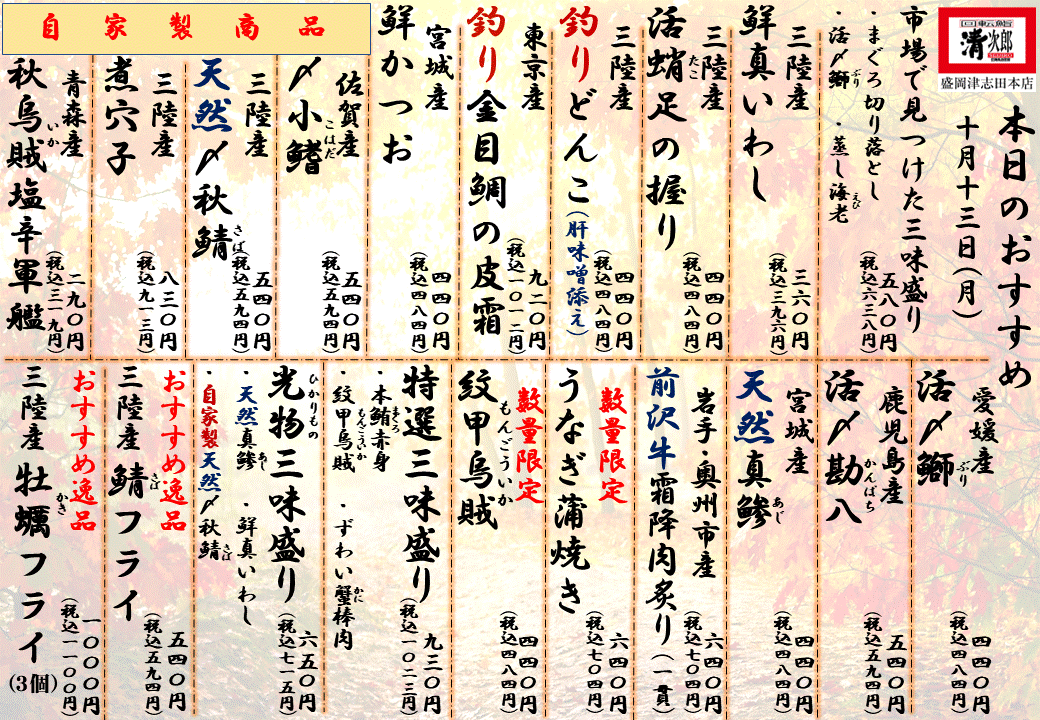 回転鮨
清次郎
盛岡津志田本店
本日のおすすめ
十月十三日(月)
市場で見つけた三味盛り
・まぐろ切り落とし
・活〆鰤 ・蒸し海老
ぶり
えび
五八〇円
(税込六三八円)
三陸産
鮮真いわし
三六〇円
(税込三九六円)
三陸産
活蛸足の握り
たこ
四四〇円
(税込四八四円)
三陸産
釣りどんこ(肝味噌添え)
四四〇円
(税込四八四円)
東京産
釣り金目鯛の皮霜
九二〇円
(税込一〇一二円)
宮城産
鮮かつお
四四〇円
(税込四八四円)
自家製商品
佐賀産
〆小鰭
こはだ
五四〇円
(税込五九四円)
三陸産
天然〆秋鯖
さば
五四〇円
(税込五九四円)
三陸産
煮穴子
八三〇円
(税込九一三円)
青森産
秋烏賊塩辛軍艦
いか
二九〇円
(税込三一九円)
愛媛産
活〆鰤
ぶり
四四〇円
(税込四八四円)
鹿児島産
活〆勘八
かんぱち
五四〇円
(税込五九四円)
宮城産
天然真鯵
あじ
四四〇円
(税込四八四円)
岩手・奥州市産
前沢牛霜降肉炙り(一貫)
六四〇円
(税込七〇四円)
数量限定
うなぎ蒲焼き
六四〇円
(税込七〇四円)
数量限定
紋甲烏賊
もんごういか
四四〇円
(税込四八四円)
特選三味盛り
・本鮪赤身
まぐろ
・紋甲烏賊 ・ずわい蟹棒肉
もんごういか
かに
九三〇円
(税込一〇二三円)
光物三味盛り
ひかりもの
・天然真鯵 ・鮮真いわし
あじ
・自家製天然〆秋鯖
さば
六五〇円
(税込七一五円)
おすすめ逸品
三陸産 鯖フライ
さば
五四〇円
(税込五九四円)
おすすめ逸品
三陸産 牡蠣フライ(3個)
かき
一〇〇〇円
(税込一一〇〇円)